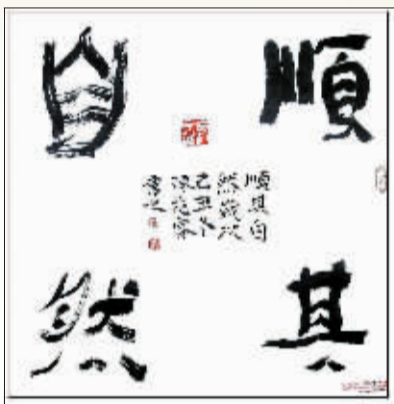 順其
自然
順其自
然歲次
己丑冬
書之